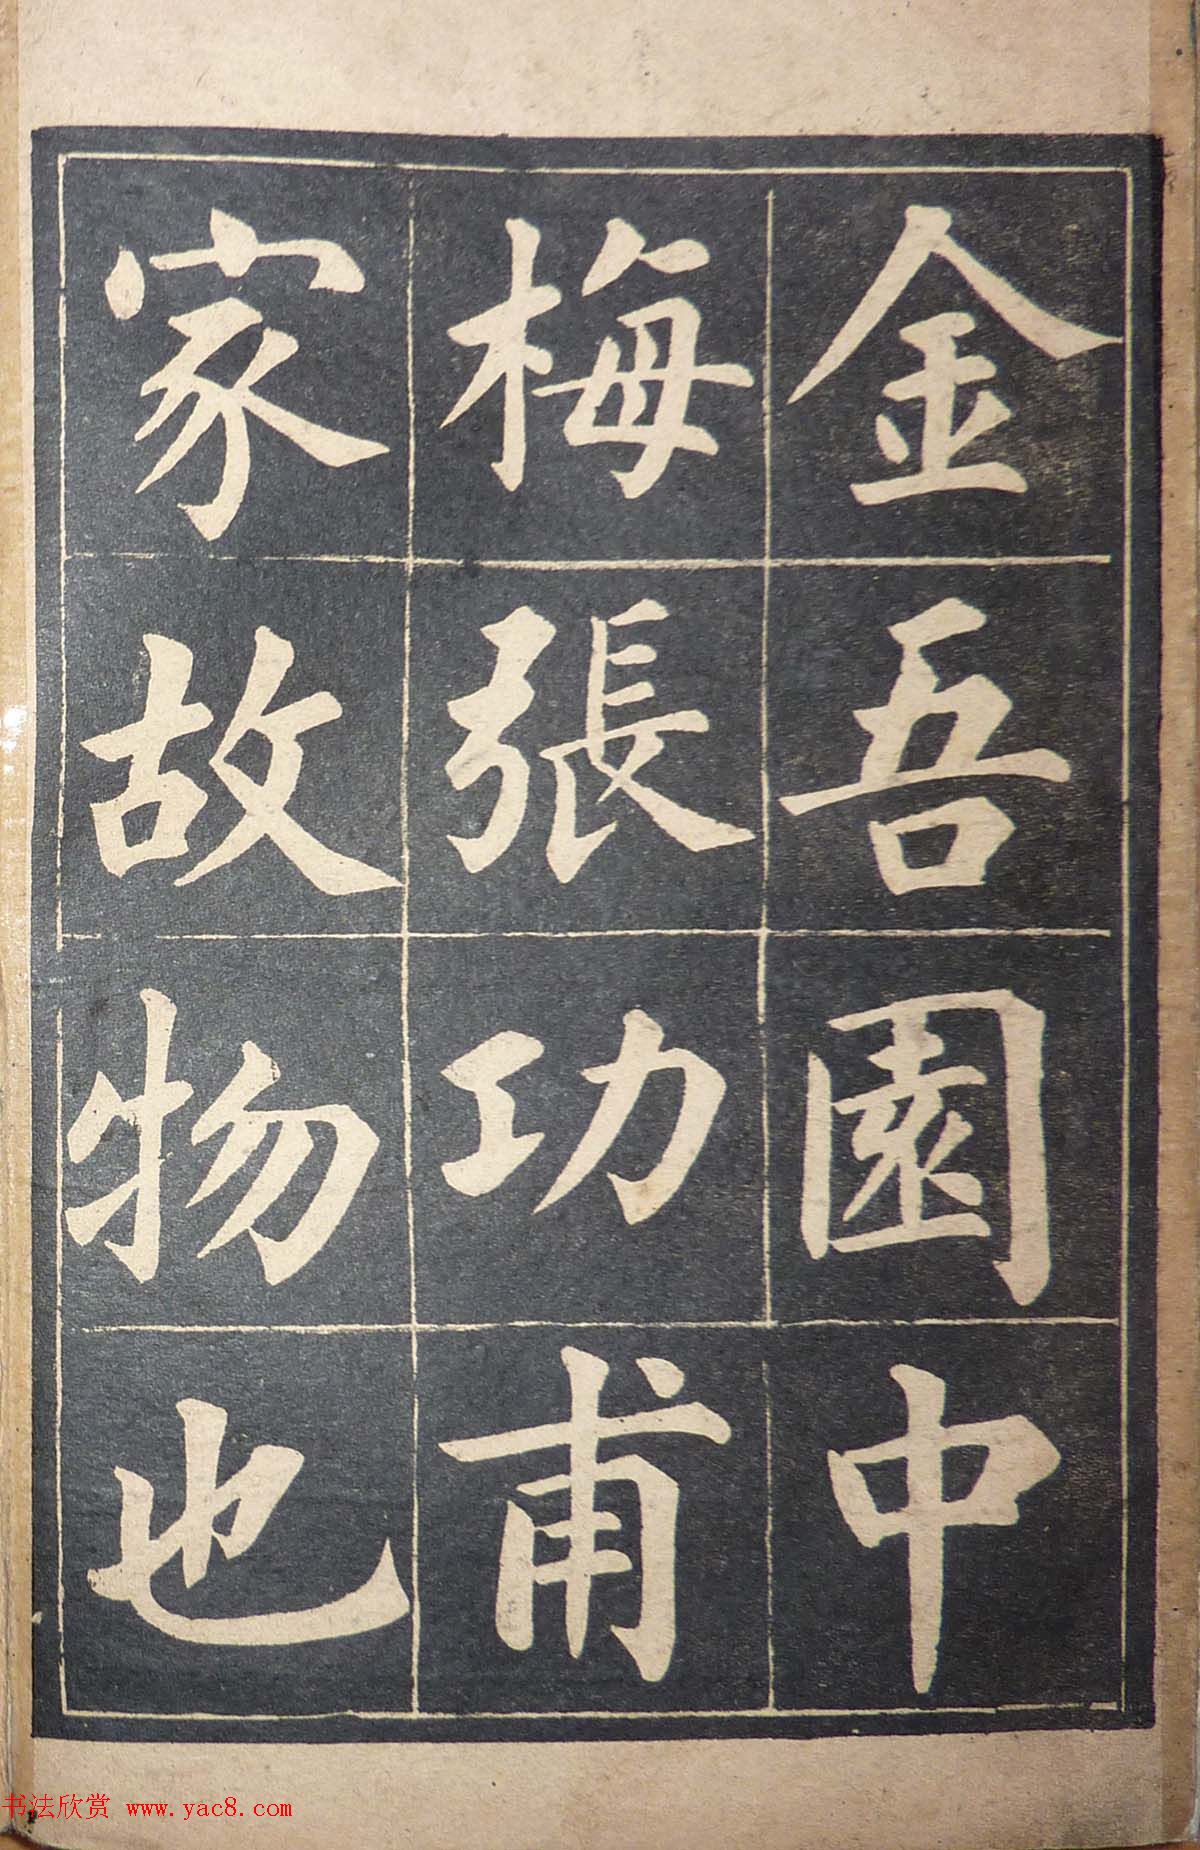 金吾園中
梅張功甫
家故物也
书法欣赏 www.yac8.com